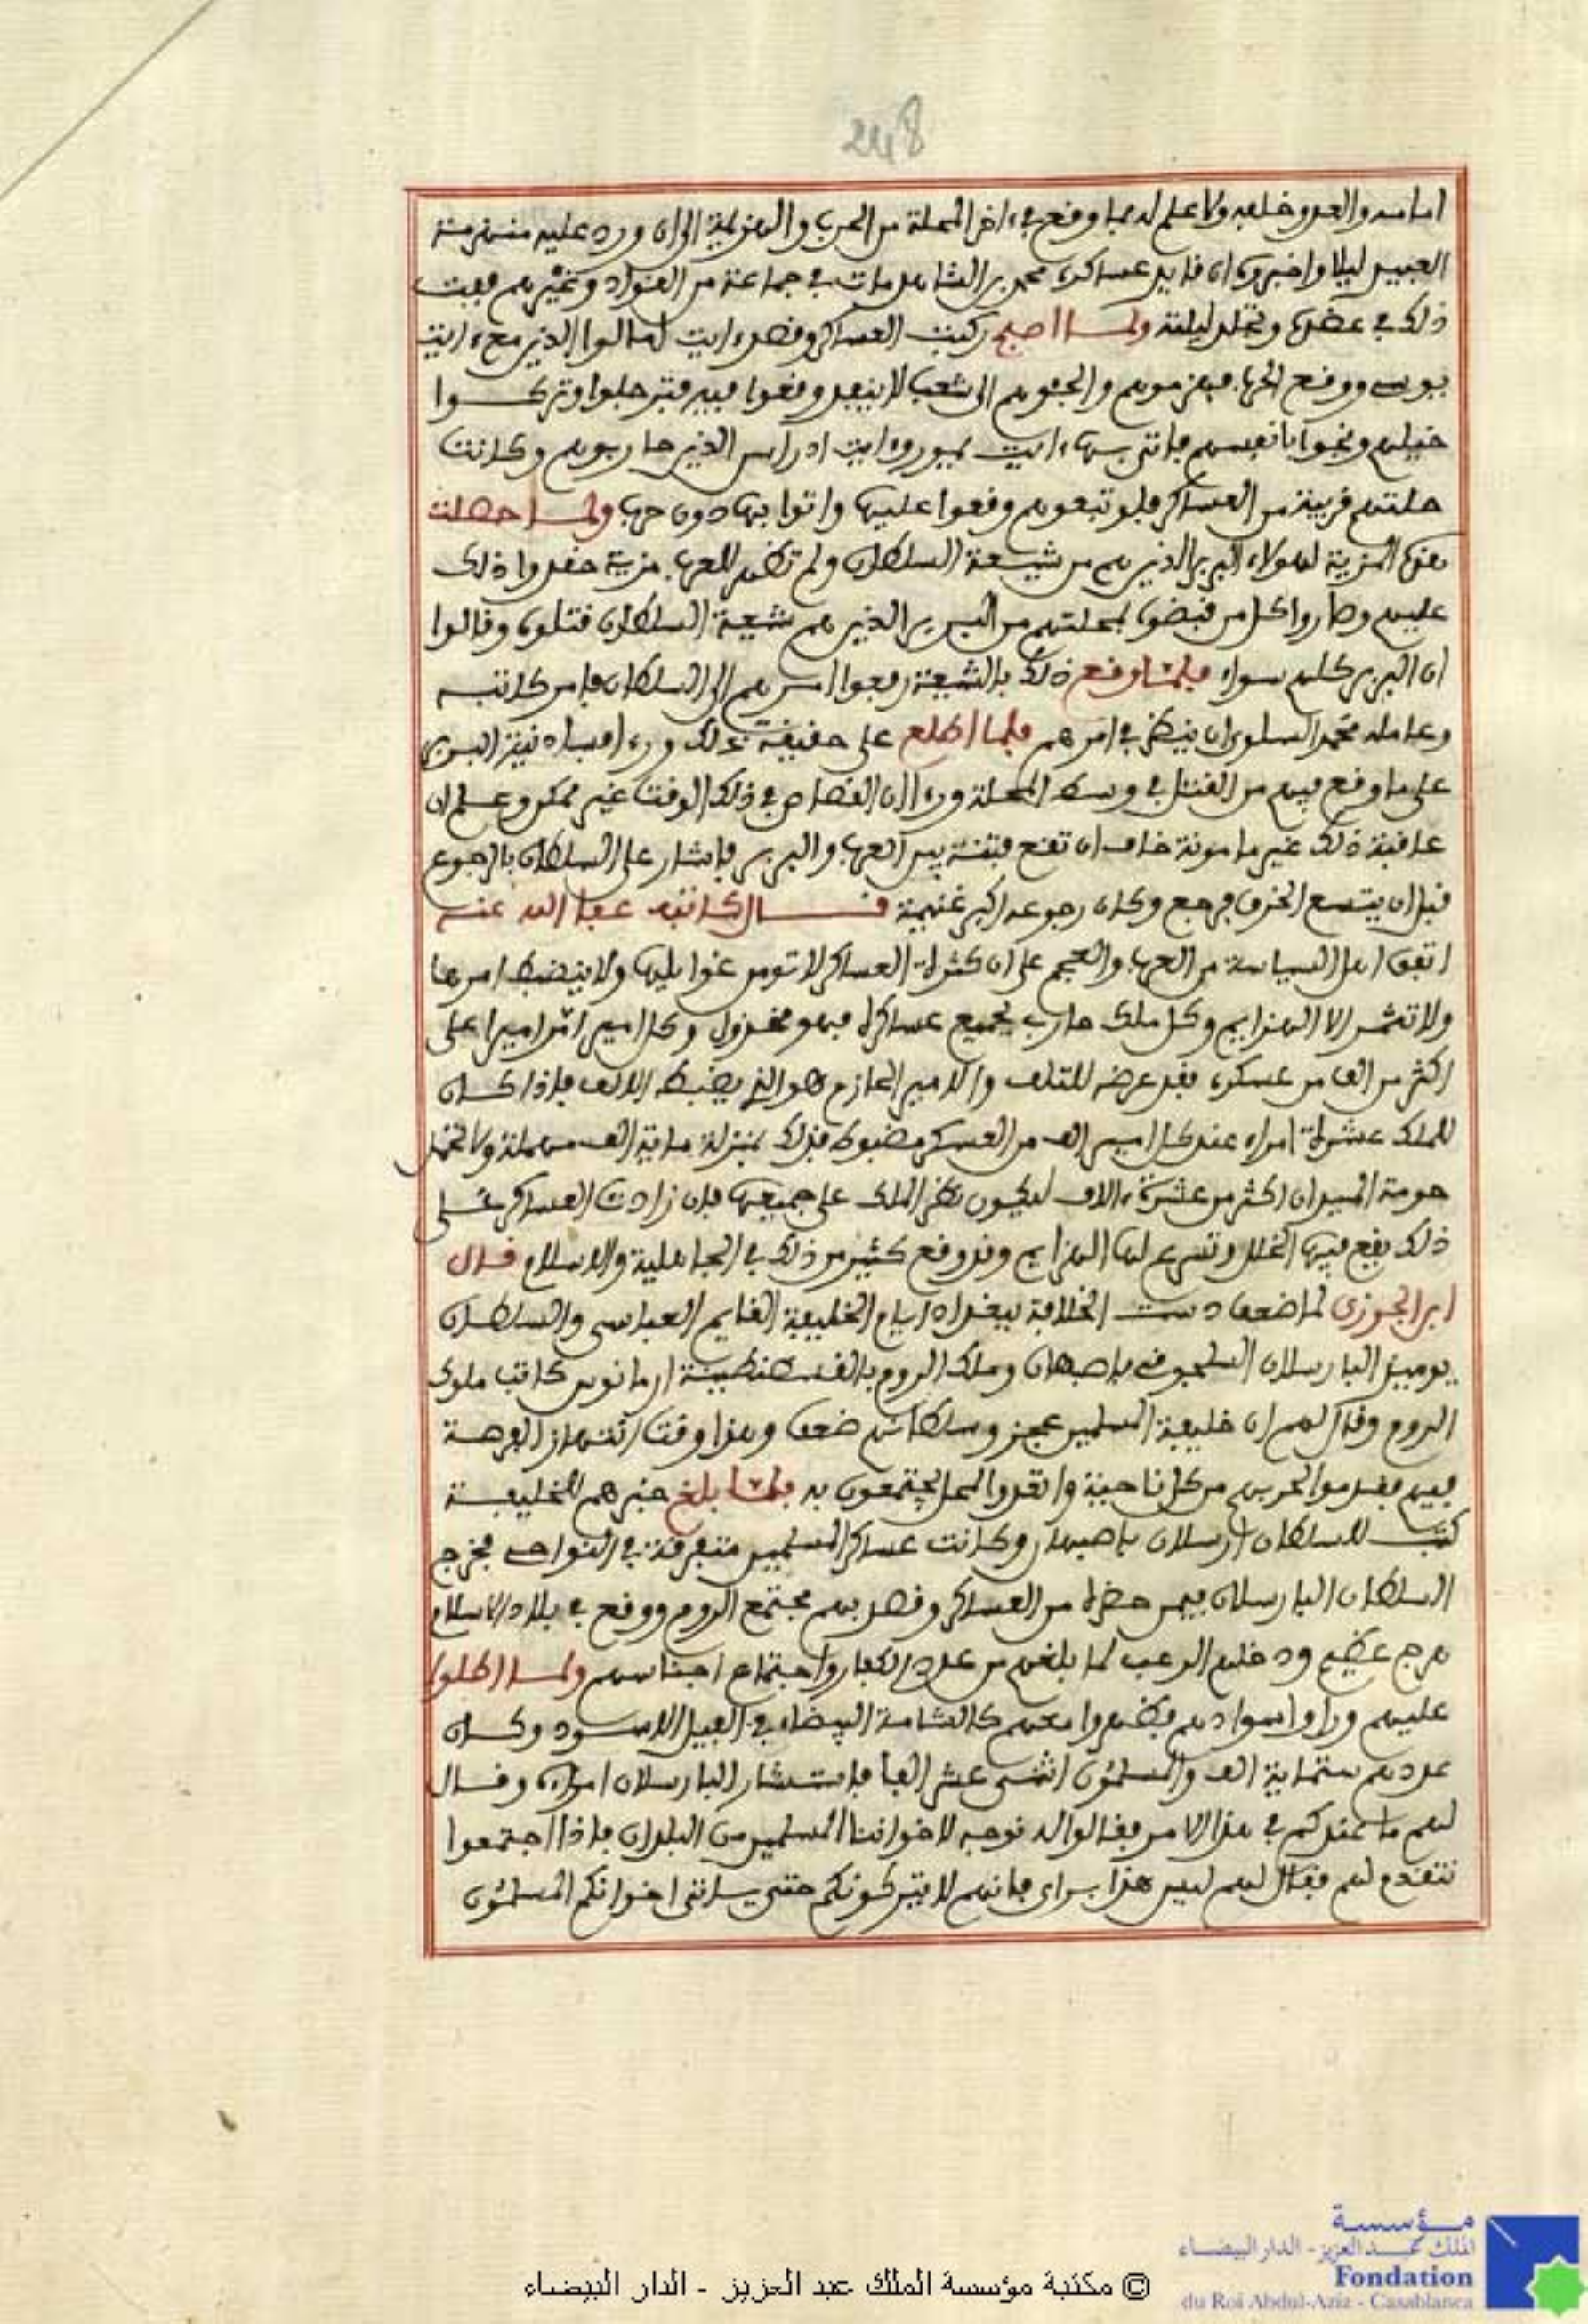 248
امامه والعدو خلفه ولا علم له بما وقع في ءاخر المحلة من الحرب والهزيمة الى ان ورد عليه منهزمة
العبيد ليلا واخبروه ان قايد عساكره محمد بن الشاهد مات في جماعة من القواد وغيرهم ففت
ذلك في عضده وتجلد ليلته ولما اصبح ركبت العساكر وقصد ءايت امالوا الذين مع ءايت
يوسى ووقع الحرب فهزموهم والجئوهم الى شعب لا ينفد وقعوا فيه فترجلوا وتركوا
خيلهم ونجوا بانفسهم فاتى بها ءايت يمور وءايت ادراسن الذين حاربوهم وكانت
حلتهم قريبة من العساكر فلو تبعوهم وقعوا عليها واتوا بها دون حرب ولما حصلت
هذه المزية لهولاء البربر الذين هم من شيعة السلطان ولم تظهر للعرب مزية حقدوا ذلك
عليهم وصاروا كل من قبضوه بمحلتهم من البربر الذين هم شيعة السلطان قتلوه وقالوا
ان البربر كلهم سواء فلما وقع ذلك بالشيعة رفعوا امرهم الى السلطان فامر كاتبه
وعامله محمد السلوى ان ينظر في امرهم فلما اطلع على حقيقة ذلك ورءا فساد نية البربر
على ما وقع فيهم من القتل في وسط المحلة ورءا ان القصاص في ذلك الوقت غير ممكن وعلم ان
عاقبة ذلك غير مامونة خاف ان تقع فتنة بين العرب والبربر فاشار على السلطان بالرجوع
قبل ان يتسع الخرق فرجع وكان رجوعه اكبر غنيمة قال كاتبه عفا الله عنه
اتفق اهل السياسة من العرب والعجم على ان كثرة العساكر لا تومن غوايلها ولا ينضبط امرها
ولا تثمر الا الهزايم وكل ملك حارب بجميع عساكره فهو مخذول وكل امير امر اميرا على
اكثر من الف من عسكره فقد عرضه للتلف والامير الحازم هو الذي يضبط الالف فاذا كان
للملك عشرة امراء عند كل امير الف من العسكر مضبوط فذلك بمنزلة ماية الف مهملة ولا تحمل
حومة الميدان اكثر من عشرة ءالاف ليكون نظر الملك على جميعها فان زادت العساكر على
ذلك يقع فيها الخلل وتسرع لها الهزايم وقد وقع كثير من ذلك في الجاهلية والاسلام قال
ابن الجوزى لما ضعف دست الخلافة ببغداد ايام الخليفة القايم العباسى والسلطان
يوميذ البارسلان السلجوقى باصبهان وملك الروم بالقسطنطينة ارمانوس كاتب ملوك
الروم وقال لهم ان خليفة المسلمين عجز وسلطانهم ضعف وهذا وقت انتهاز الفرصة
فيهم فقدموا لحربهم من كل ناحية واتعدوا لمحل يجتمعون به فلما بلغ خبرهم للخليفة
كتب للسلطان ارسلان باصبهان وكانت عساكر المسلمين متفرقة في النواحى فخرج
السلطان البارسلان فيمن حضره من العساكر وقصد بهم مجتمع الروم ووقع في بلاد الاسلام
هرج عظيم ودخلهم الرعب لما بلغهم من عدد الكفار واجتماع اجناسهم ولما اطلوا
عليهم وراوا سوادهم فظهروا معهم كالشامة البيضاء في الفيل الاسود وكان
عددهم ستماية الف والمسلمون اثنى عشر الفا فاستشار البارسلان امراءه وقال
لهم ما عندكم في هذا الامر فقالوا له نوجه لاخواننا المسلمين من البلدان فاذا اجتمعوا
نتقدم لهم فقال لهم ليس هذا براى فانهم لا يتركونكم حتى ياتى اخوانكم المسلمون
مؤسسة
الملك عبد العزيز - الدار البيضاء
Fondation
du Roi Abdul-Aziz - Casablanca
© مكتبة مؤسسة الملك عبد العزيز - الدار البيضاء